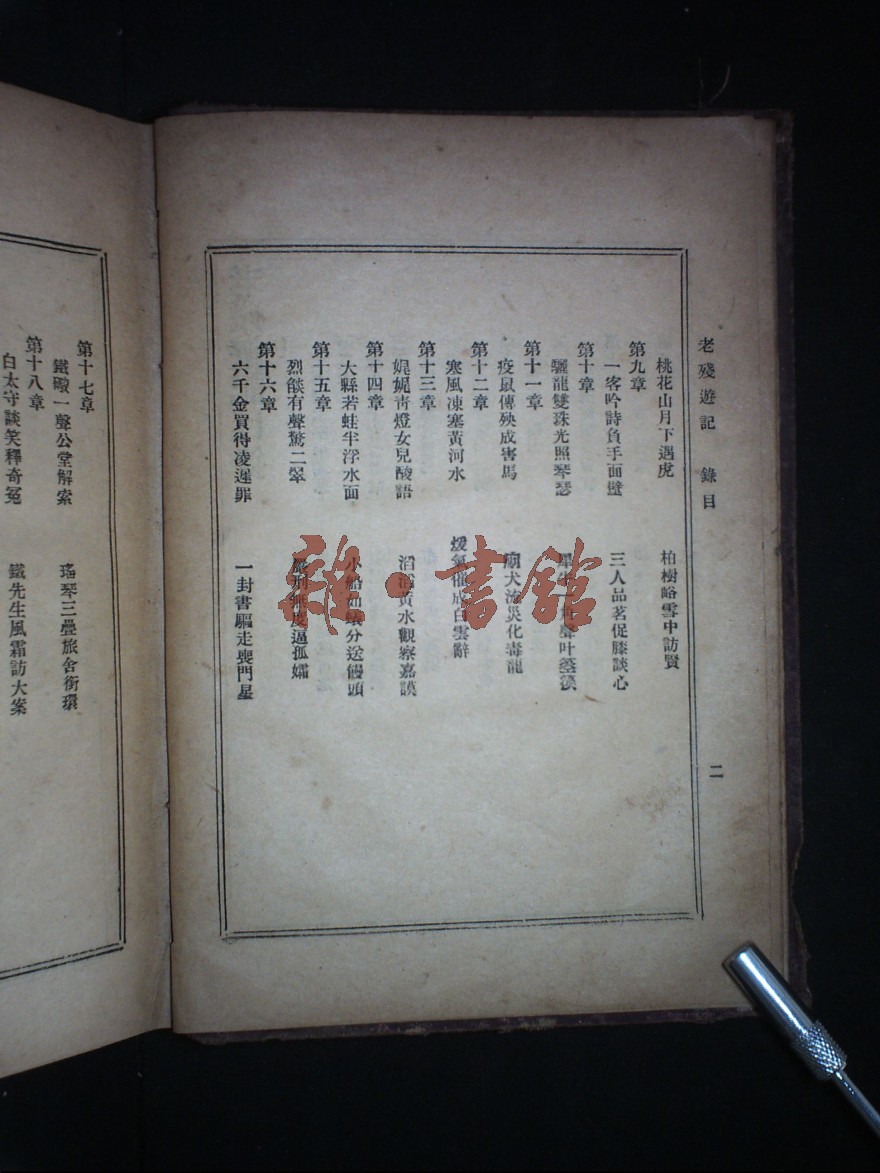 老殘遊記 錄目 二
桃花山月下遇虎 柏樹峪雪中訪賢
第九章
一客吟詩負手面壁 三人品茗促膝談心
第十章
驪龍雙珠光照琴瑟 犀牛一角聲叶箜篌
第十一章
疫鼠傳殃成害馬 犬流災化毒龍
第十二章
寒風凍塞黃河水 煖氣催成白雲辭
第十三章
娓娓靑燈女兒酸語 滔滔黃水觀察嘉謨
第十四章
大縣若蛙半浮水面 小船如蟻分送饅頭
第十五章
烈燄有聲驚二翠 嚴刑無度逼孤孀
第十六章
六千金買得凌遲罪 一封書驅走喪門星
第十七章
鐵礮一聲公堂解索 瑤琴三疊旅舍銜環
第十八章
白太守談笑釋奇冤 鐵先生風霜訪大案
雜·書館